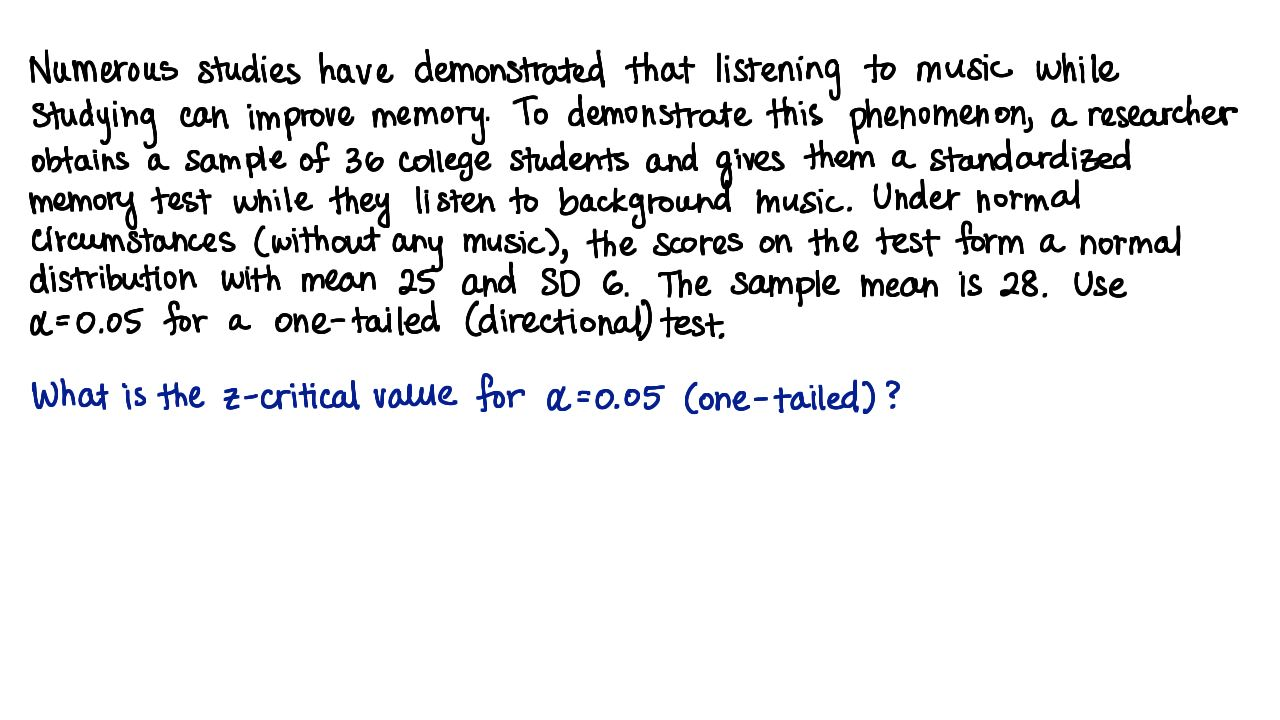 Numerous studies have demonstrated that listening to music while
studying can improve memory. To demonstrate this phenomenon, a researcher
obtains a sample of 36 college students and gives them a standardized
memory test while they listen to background music. Under normal
circumstances (without any music), the scores on the test form a normal
distribution with mean 25 and SD 6. The sample mean is 28. Use
α=0.05 for a one-tailed (directional) test.
What is the z-critical value for α=0.05 (one-tailed)?